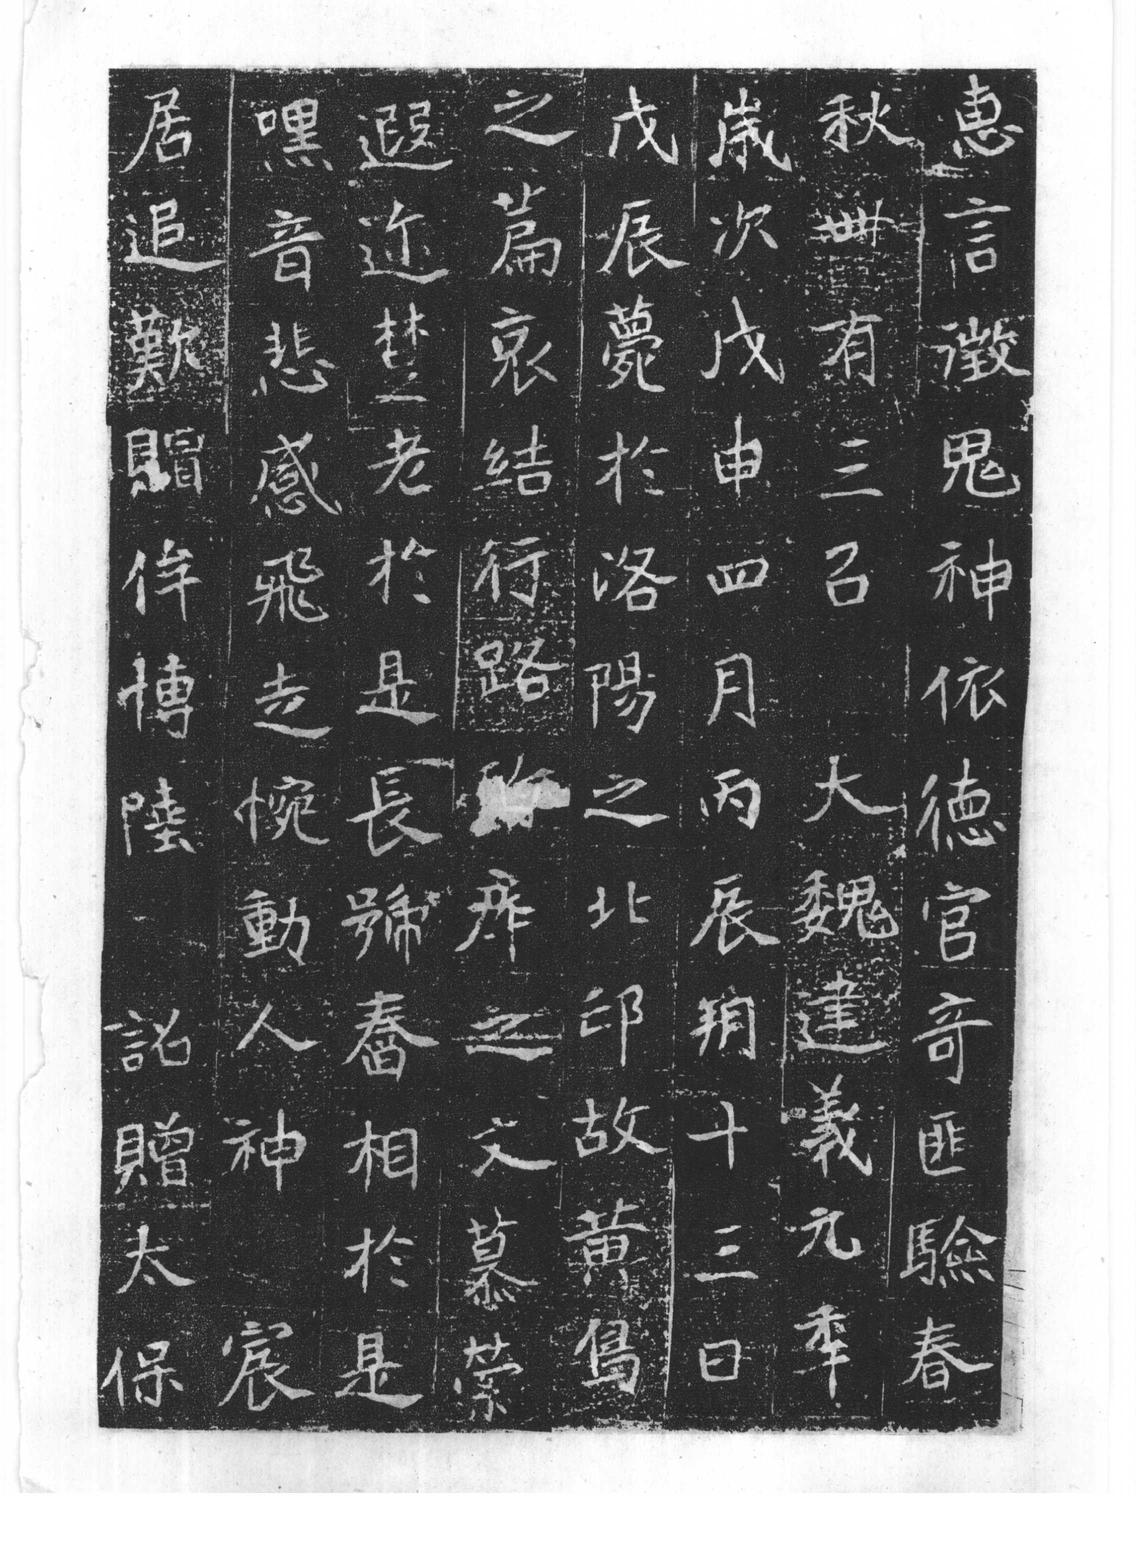 惠言徵鬼神依德官奇匪驗春
秋卌有三召大魏建義元年
歲次戊申四月丙辰朔十三日
戊辰薨於洛陽之北邙故黃鳥
之篇哀結行路痑之文慕縈
遐迩楚老於是長號舂相於是
嘿音悲感飛走惋動人神宸
居追歎賵侔博陸詔贈太保